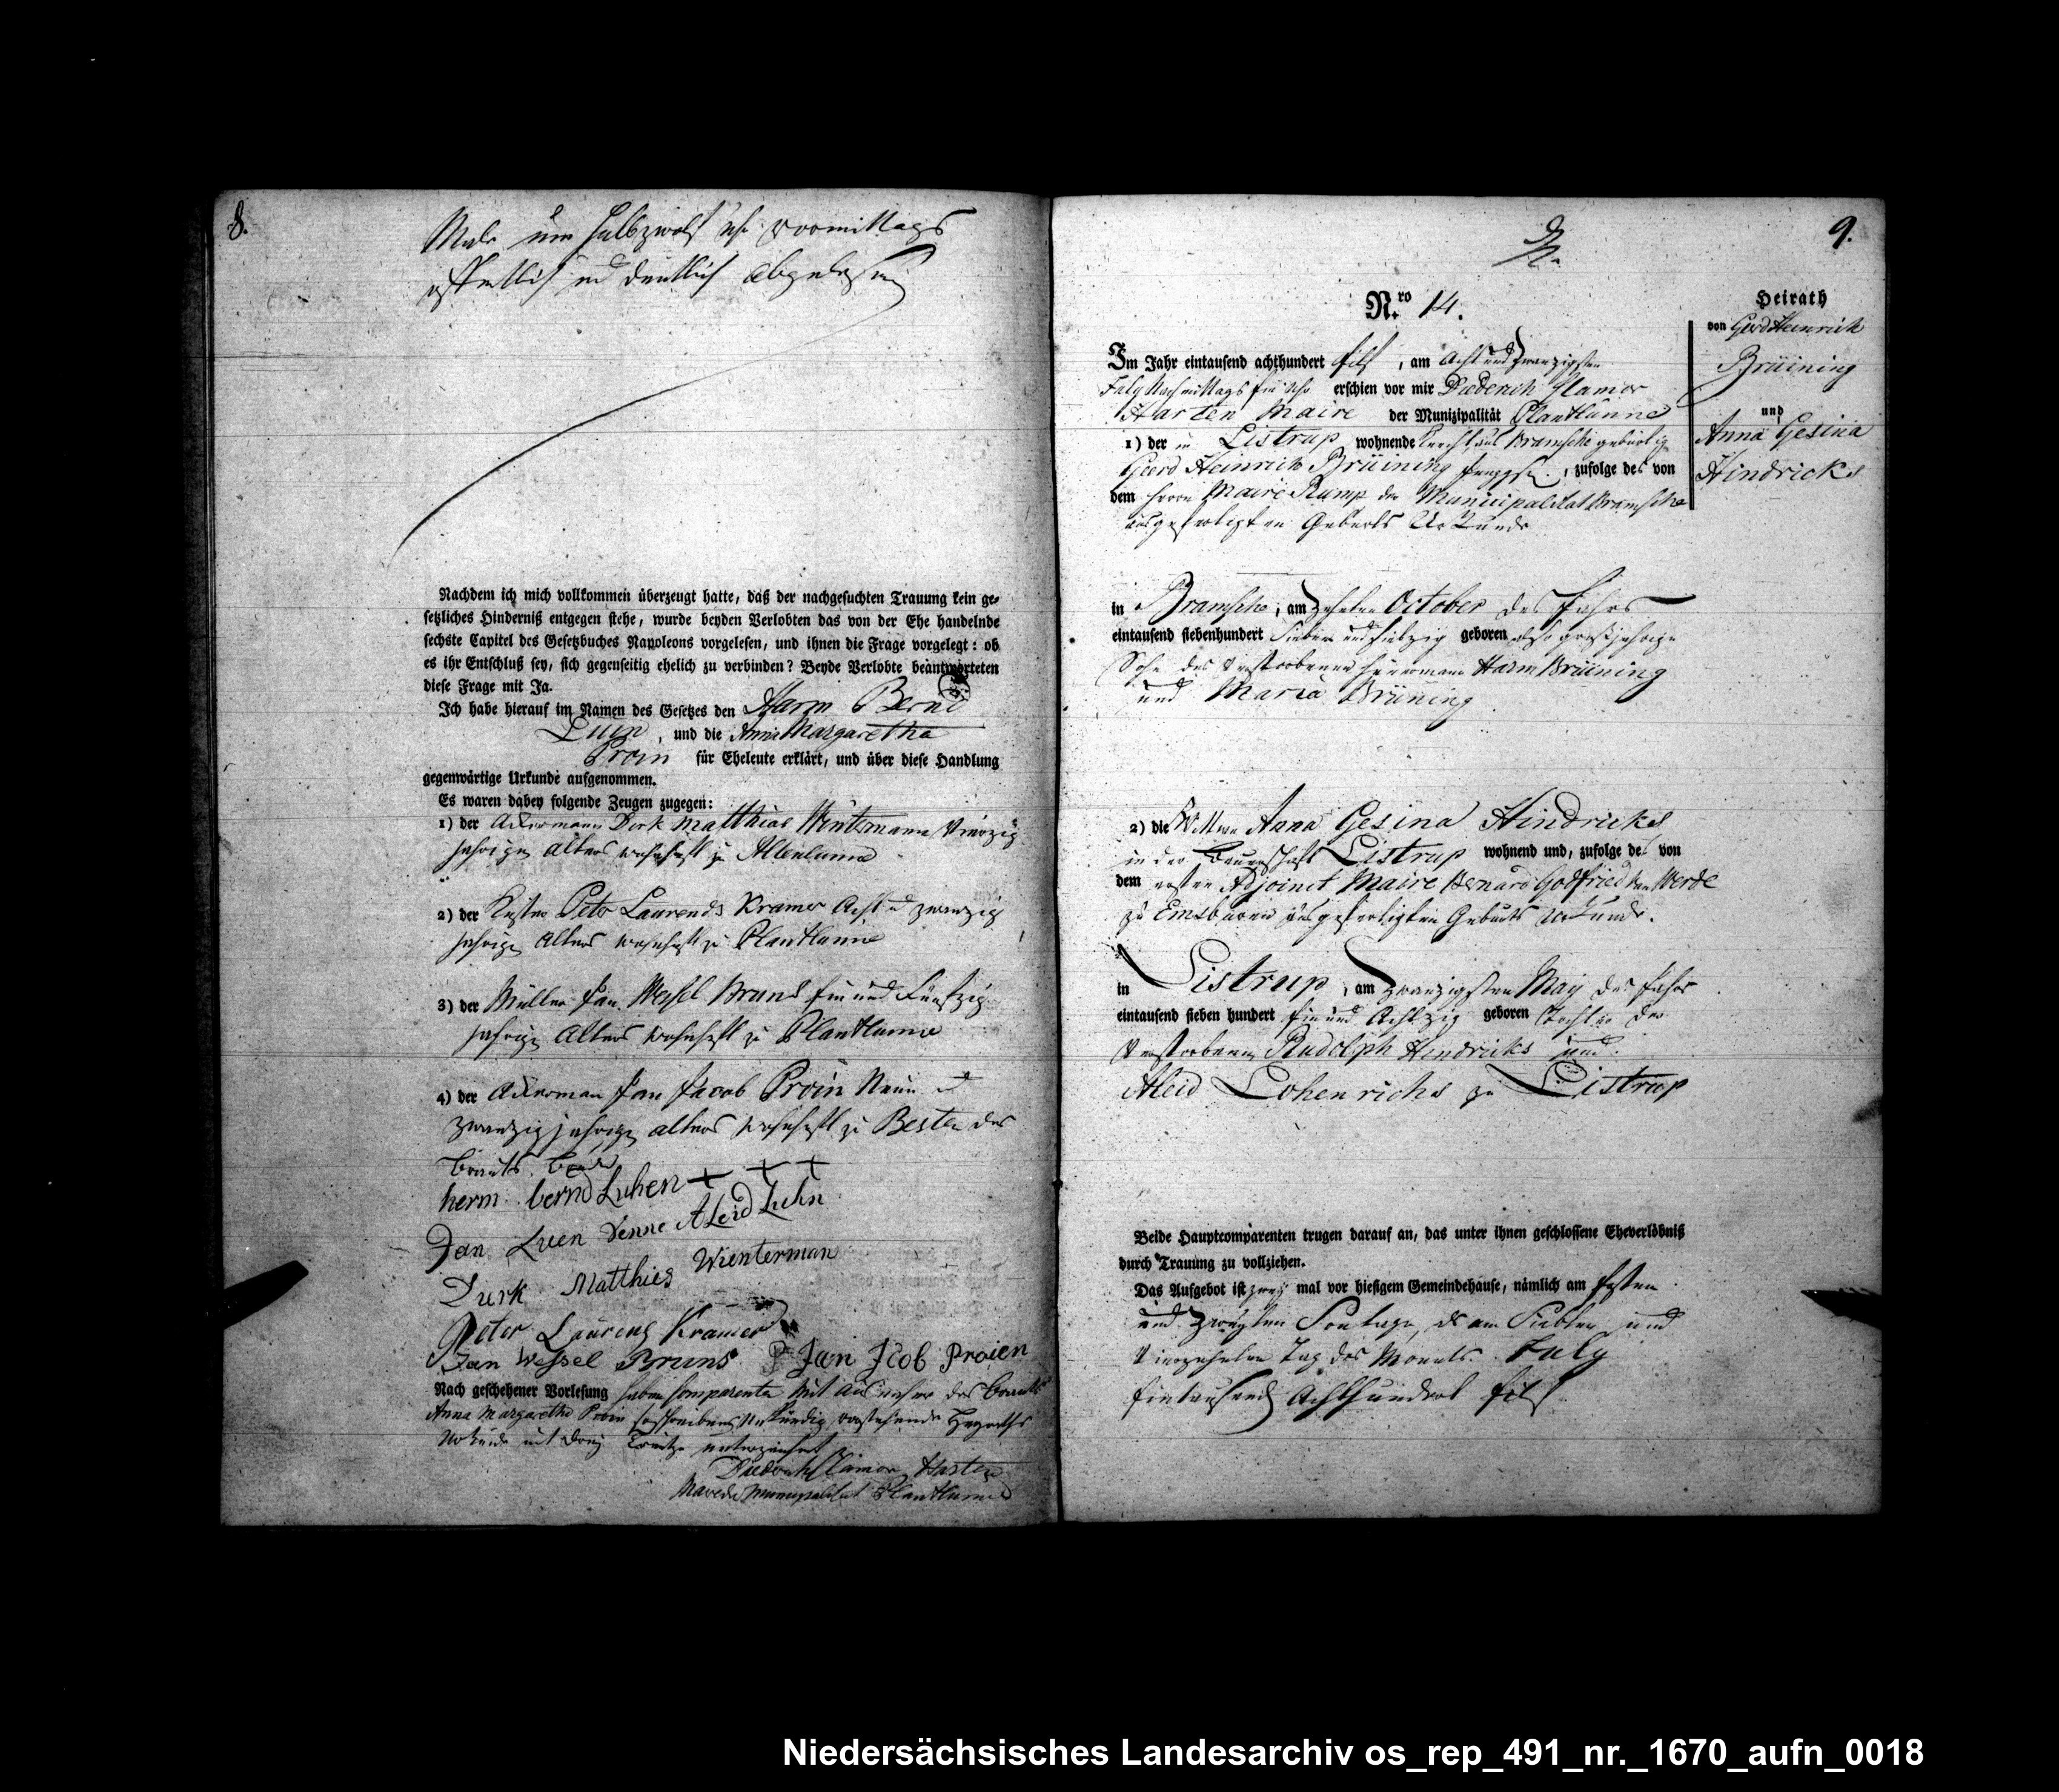 8.
Male um halbzwolf uhr vormittags
offentlich und deutlich abgelesen
Nachdem ich mich vollkommen überzeugt hatte, daß der nachgesuchten Trauung kein ge-
setzliches Hinderniß entgegen stehe, wurde beyden Verlobten das von der Ehe handelnde
sechste Capitel des Gesetzbuches Napoleons vorgelesen, und ihnen die Frage vorgelegt: ob
es ihr Entschluß sey, sich gegenseitig ehelich zu verbinden? Beyde Verlobte beantworteten
diese Frage mit Ja.
Ich habe hierauf im Namen des Gesetzes den Harm Bernd
Luen, und die Anna Margaretha
Proin für Eheleute erklärt, und über diese Handlung
gegenwärtige Urkunde aufgenommen.
Es waren dabey folgende Zeugen zugegen:
1) der Ackermann Derk Matthias Wintermann Vierzig
jahrigen Alters wohnhaft zu Altenlunne
2) der Küster Peter Laurends Kramer Acht und zwanzig
jahrigen Alters wohnhaft zu Plantlunne
3) der Müller Jan Wessel Bruns Ein und Fünfzig
jahrigen Alters wohnhaft zu Plantlunne
4) der Ackerman Jan Jacob Proin Neun und
zwanzig jahrigen alters wohnhaft zu Besten des
Brauts Bruder
herm bernd Luhen + + +
Jan Luen Venne ALeid Luhn
Durk Matthies Wienterman
Peter Laurens Kramer
Jan Wessel Bruns Jan Jcob Proien
Nach geschehener Vorlesung haben Comparenten mit Ausnahme der Braut
Anna Margaretha Proin schreibens Unkündig vorstehende Heyraths
Urkunde mit drey Kreutze unterzeichnet
Diederich Clamor Harten
Maire der Municipalitat Plantlunne
9.
Nro 14.
Heirath
von Gerd Heinrich
Brüining
und
Anna Gesina
Hindricks
Im Jahr eintausend achthundert Eilf, am Acht und zwanzigsten
July Nachmittags Ein Uhr erschien vor mir Diederich Clamor
Harten Maire der Munizipalität Plantlunne
1) der in Listrup wohnende Knecht aus Bramsche gebürtig
Gerd Heinrich Brüining, zufolge des von
dem Herrn Maire Rump der Municipalitat Bramsche
ausgefertigten Geburts Urkunde
in Bramsche, am Zehnten October des Jahrs
eintausend siebenhundert Sieben und siebzig geboren also großjahrige
Sohn des Verstorbenen Heuermann Harm Brüining
und Maria Brüning
2) die Wittwe Anna Gesina Hindricks
in der Bauerschaft Listrup wohnend und, zufolge des von
dem ersten Adjoinct Maire Bernard Godfried van Werde
zu Emsbüren ausgefertigten Geburts Urkunde.
in Listrup, am Zwanzigsten May des Jahrs
eintausend sieben hundert Ein und Achtzig geboren Tochter der
Verstorbenen Rudolph Hindricks und
Aleid Lohenrichs zu Listrup
Beide Hauptcomparenten trugen darauf an, das unter ihnen geschlossene Eheverlöbniß
durch Trauung zu vollziehen.
Das Aufgebot ist zwey mal vor hiesigem Gemeindehause, nämlich am Ersten
und zweyten Sontage, als am Siebten und
Vierzehnten Tag des Monats July
Eintausend Achthundert Eilf.
Niedersächsisches Landesarchiv os_rep_491_nr._1670_aufn_0018